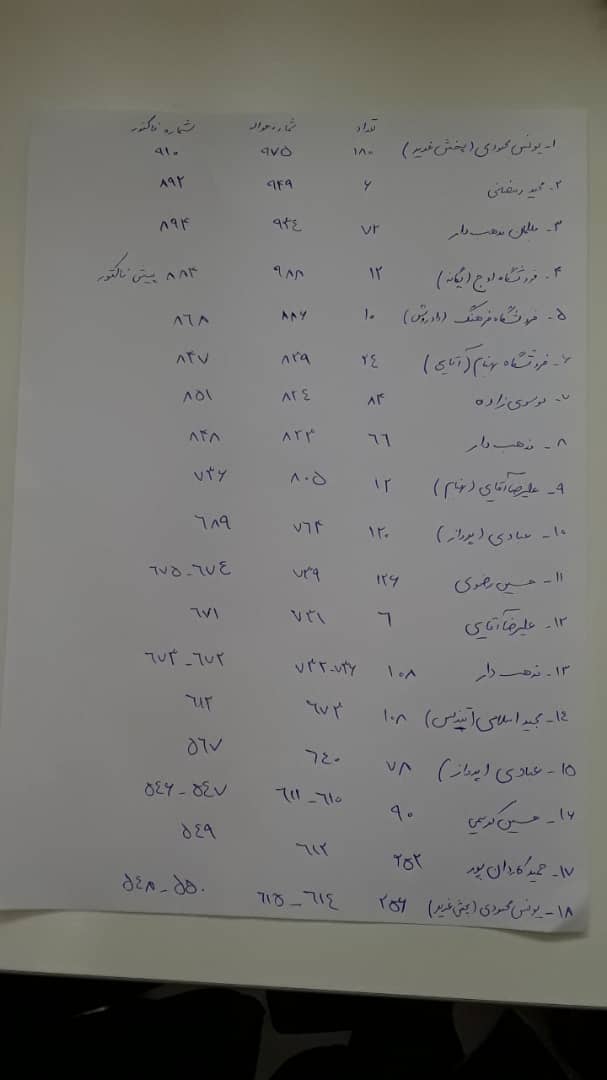 تعداد شماره حواله شماره فاکتور
۱- یونس محمودی (پخش غدیر) ۱۸۰ ۹۷۵ ۹۱۰
۲- مجید رمضانی ۶ ۹۴۹ ۸۹۲
۳- مذهب دار ۷۲ ۹۳٤ ۸۹۴
۴- فروشگاه اوج (یگانه) ۱۲ ۹۸۸ ۸۸۳ پیش فاکتور
۵- فروشگاه فرهنگ ۱۰ ۸۸۶ ۸٦۸
۶- فروشگاه بهنام (آقایی) ۲٤ ۸۲۹ ۸۴۷
۷- موسوی زاده ۸۴ ۸۲٤ ۸۵۱
۸- مذهب دار ٦٦ ۸۲۳ ۸۴۸
۹- علیرضا آقایی (بهنام) ۱۲ ۸۰۵ ۷۳۶
۱۰- عبادی (پرداز) ۱۲۰ ۷٦۴ ٦۸۹
۱۱- حسین رضوی ۱۲۶ ۷۳۹ ٦۷٤-٦۷۵
۱۲- علیرضا آقایی ٦ ۷۳۱ ٦۷۱
۱۳- مذهب دار ۱۰۸ ۷۳۶-۷۳۲ ٦۷۲-٦۷۳
۱٤- مجید اسلامی (تندیس) ۱۰۸ ٦۷۳ ٦۱۲
۱۵- عبادی (پرداز) ۷۸ ٦٤۰ ۵٦۷
۱۶- حسین کریمی ۹۰ ٦۱۰-٦۱۱ ۵٤۷-۵٤۶
۱۷- حمید کاردان پور ۲۵۲ ٦۱۲ ۵٤۹
۱۸- یونس محمودی (پخش غدیر) ۲۵۶ ٦۱٤-٦۱۵ ۵۵۰-۵٤۸